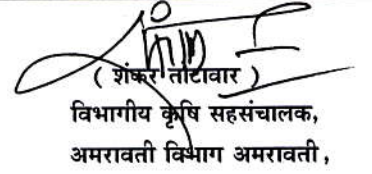 ( शंकर तोटावार )
विभागीय कृषि सहसंचालक,
अमरावती विभाग अमरावती,